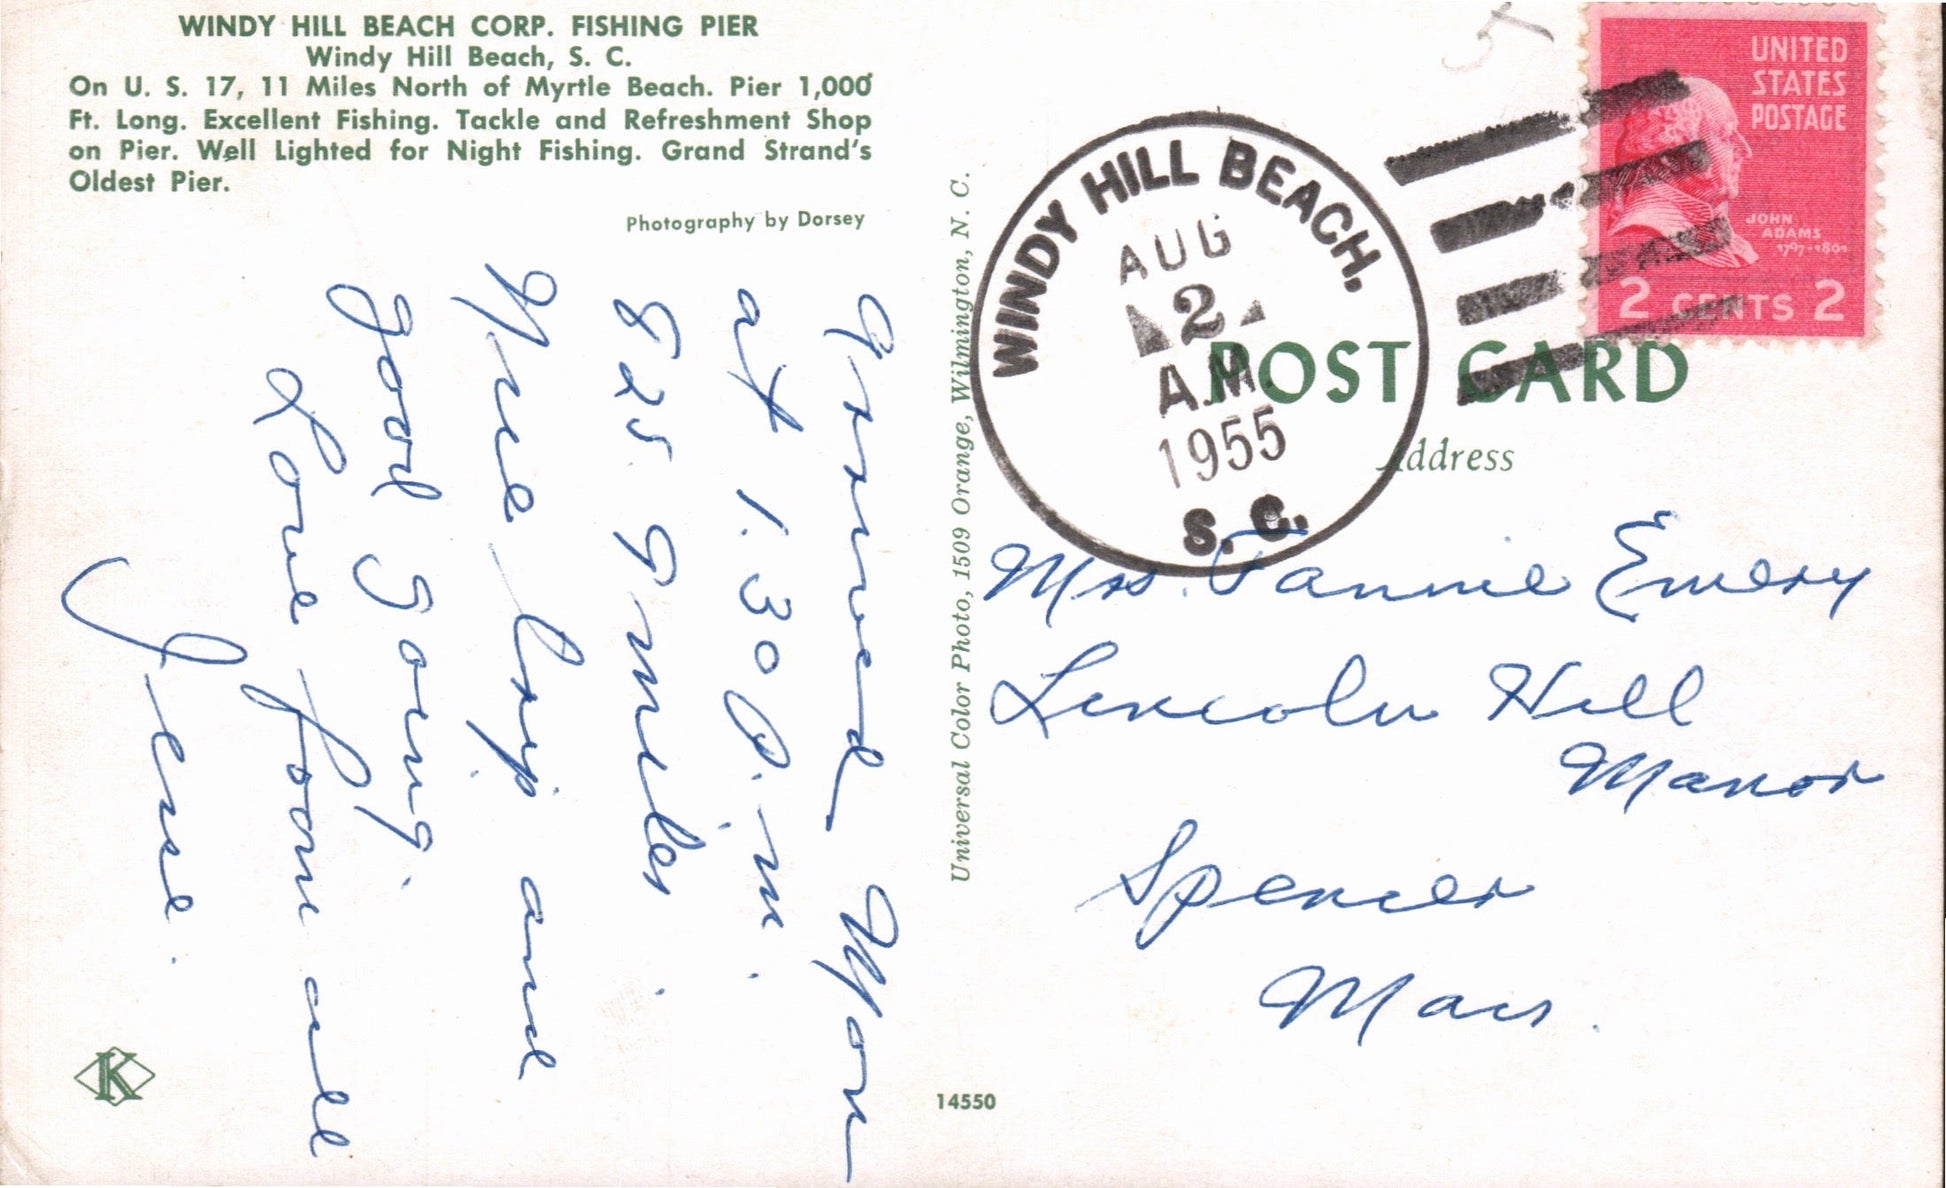 WINDY HILL BEACH CORP. FISHING PIER
Windy Hill Beach, S. C.
On U. S. 17, 11 Miles North of Myrtle Beach. Pier 1,000
Ft. Long. Excellent Fishing. Tackle and Refreshment Shop
on Pier. Well Lighted for Night Fishing. Grand Strand's
Oldest Pier.
Photography by Dorsey
Arrived Mon
at 1.30 P.m.
825 9 miles.
Nice trip and
good going.
Love from all
Jesse.
K
Universal Color Photo, 1509 Orange, Wilmington, N. C.
14550
5
UNITED
STATES
POSTAGE
JOHN
ADAMS
1797-1801
2 CENTS 2
WINDY HILL BEACH.
AUG
2
A.M
1955
S. C.
POST CARD
Address
Mrs. Fannie Emery
Lincoln Hill
Manor
Spencer
Mass.